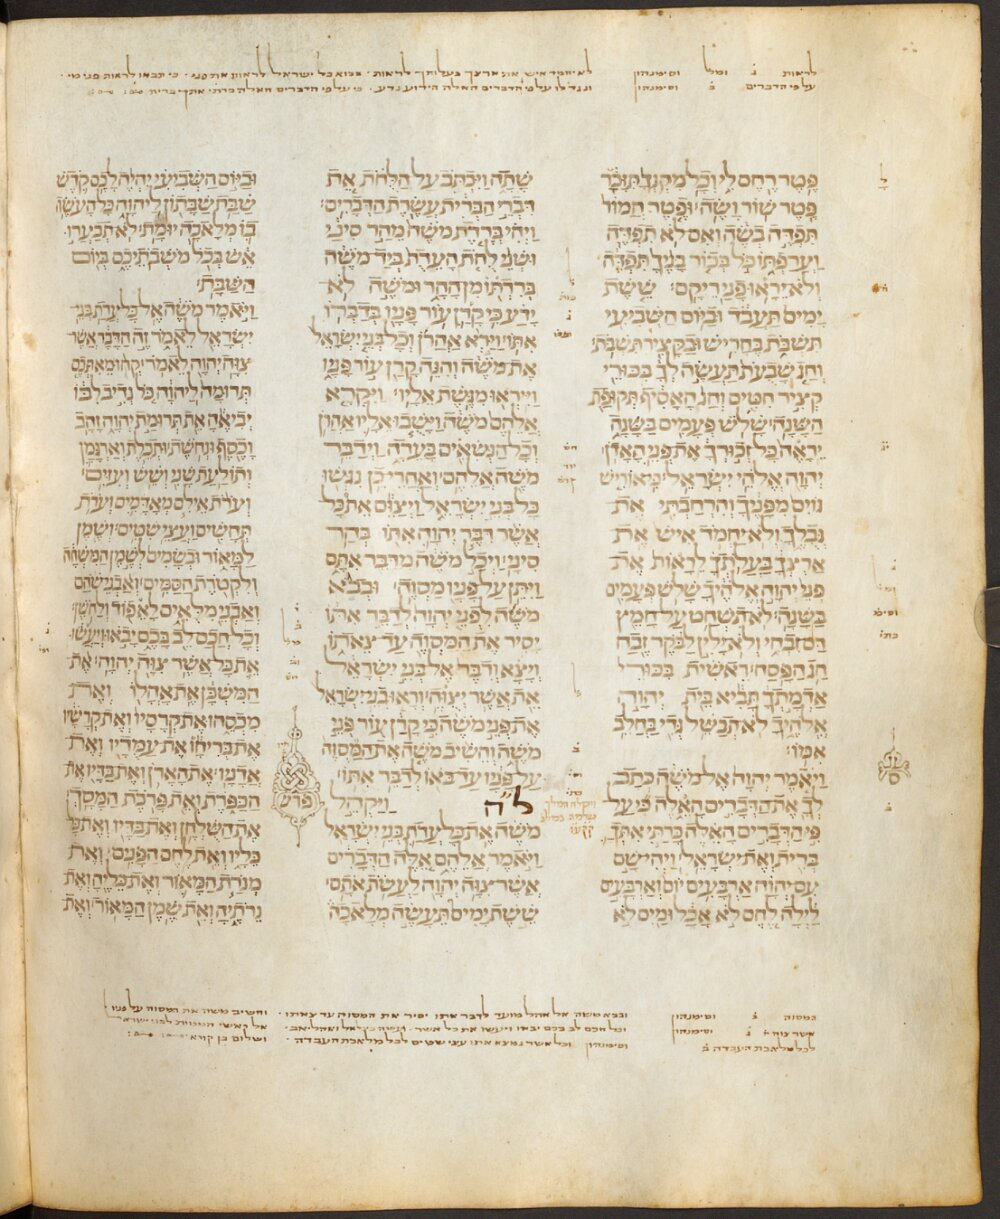 לראות ג ומל וסימנהון לא יחמד איש את ארצך בעלותך לראות . בבוא כל ישראל לראות את פני . כי תבאו לראות פני מי .
על פי הדברים ב וסימנהון ונגד לו על פי הדברים האלה הידוע נדע . כי על פי הדברים האלה כרתי אתך ברית
פטר רחם לי וכל מקנך תזכר
פטר שור ושה ופטר חמור
תפדה בשה ואם לא תפדה
וערפתו כל בכור בניך תפדה
ולא יראו פני ריקם ששת
ימים תעבד וביום השביעי
תשבת בחריש ובקציר תשבת
וחג שבעת תעשה לך בכורי
קציר חטים וחג האסיף תקופת
השנה שלש פעמים בשנה
יראה כל זכורך את פני האדן
יהוה אלהי ישראל כי אוריש
גוים מפניך והרחבתי את
גבלך ולא יחמד איש את
ארצך בעלתך לראות את
פני יהוה אלהיך שלש פעמים
בשנה לא תשחט על חמץ
דם זבחי ולא ילין לבקר זבח
חג הפסח ראשית בכורי
אדמתך תביא בית יהוה
אלהיך לא תבשל גדי בחלב
אמו
ויאמר יהוה אל משה כתב
לך את הדברים האלה כי על
פי הדברים האלה כרתי אתך
ברית ואת ישראל ויהי שם
עם יהוה ארבעים יום וארבעים
לילה לחם לא אכל ומים לא
שתה ויכתב על הלחת את
דברי הברית עשרת הדברים
ויהי ברדת משה מהר סיני
ושני לחת העדת ביד משה
ברדתו מן ההר ומשה לא
ידע כי קרן עור פניו בדברו
אתו וירא אהרן וכל בני ישראל
את משה והנה קרן עור פניו
וייראו מגשת אליו ויקרא
אלהם משה וישבו אליו אהרן
וכל הנשאים בעדה וידבר
משה אלהם ואחרי כן נגשו
כל בני ישראל ויצום את כל
אשר דבר יהוה אתו בהר
סיני ויכל משה מדבר אתם
ויתן על פניו מסוה ובבא
משה לפני יהוה לדבר אתו
יסיר את המסוה עד צאתו
ויצא ודבר אל בני ישראל
את אשר יצוה וראו בני ישראל
את פני משה כי קרן עור פני
משה והשיב משה את המסוה
על פניו עד באו לדבר אתו
לה ויקהל
משה את כל עדת בני ישראל
ויאמר אלהם אלה הדברים
אשר צוה יהוה לעשת אתם
ששת ימים תעשה מלאכה
פרש
וביום השביעי יהיה לכם קדש
שבת שבתון ליהוה כל העשה
בו מלאכה יומת לא תבערו
אש בכל משבתיכם ביום
השבת
ויאמר משה אל כל עדת בני
ישראל לאמר זה הדבר אשר
צוה יהוה לאמר קחו מאתכם
תרומה ליהוה כל נדיב לבו
יביאה את תרומת יהוה זהב
וכסף ונחשת ותכלת וארגמן
ותולעת שני ושש ועזים
וערת אילם מאדמים וערת
תחשים ועצי שטים ושמן
למאור ובשמים לשמן המשחה
ולקטרת הסמים ואבני שהם
ואבני מלאים לאפוד ולחשן
וכל חכם לב בכם יבאו ויעשו
את כל אשר צוה יהוה את
המשכן את אהלו ואת
מכסהו את קרסיו ואת קרשיו
את בריחו את עמדיו ואת
אדניו את הארן ואת בדיו את
הכפרת ואת פרכת המסך
את השלחן ואת בדיו ואת כל
כליו ואת לחם הפנים ואת
מנרת המאור ואת כליה ואת
נרתיה ואת שמן המאור ואת
המסוה ג וסימנהון ובבא משה אל אהל מועד לדבר אתו יסיר את המסוה עד צאתו . והשיב משה את המסוה על פניו .